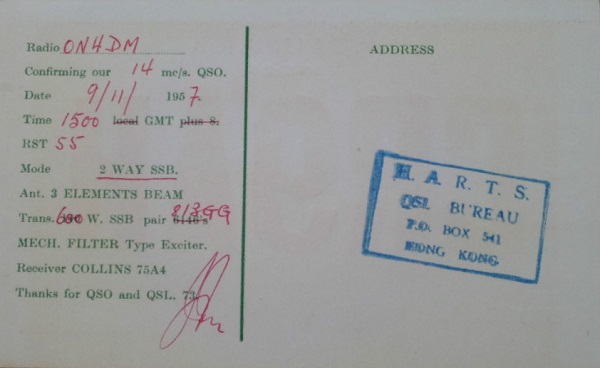 Radio ON4DM
Confirming our 14 mc/s. QSO.
Date 9/11/ 1957.
Time 1500 local GMT plus 8.
RST 55
Mode 2 WAY SSB.
Ant. 3 ELEMENTS BEAM
Trans. 600 W. SSB pair 813GG
MECH. FILTER Type Exciter.
Receiver COLLINS 75A4
Thanks for QSO and QSL. 73,
ADDRESS
H. A. R. T. S.
QSL BUREAU
P.O. BOX 541
HONG KONG